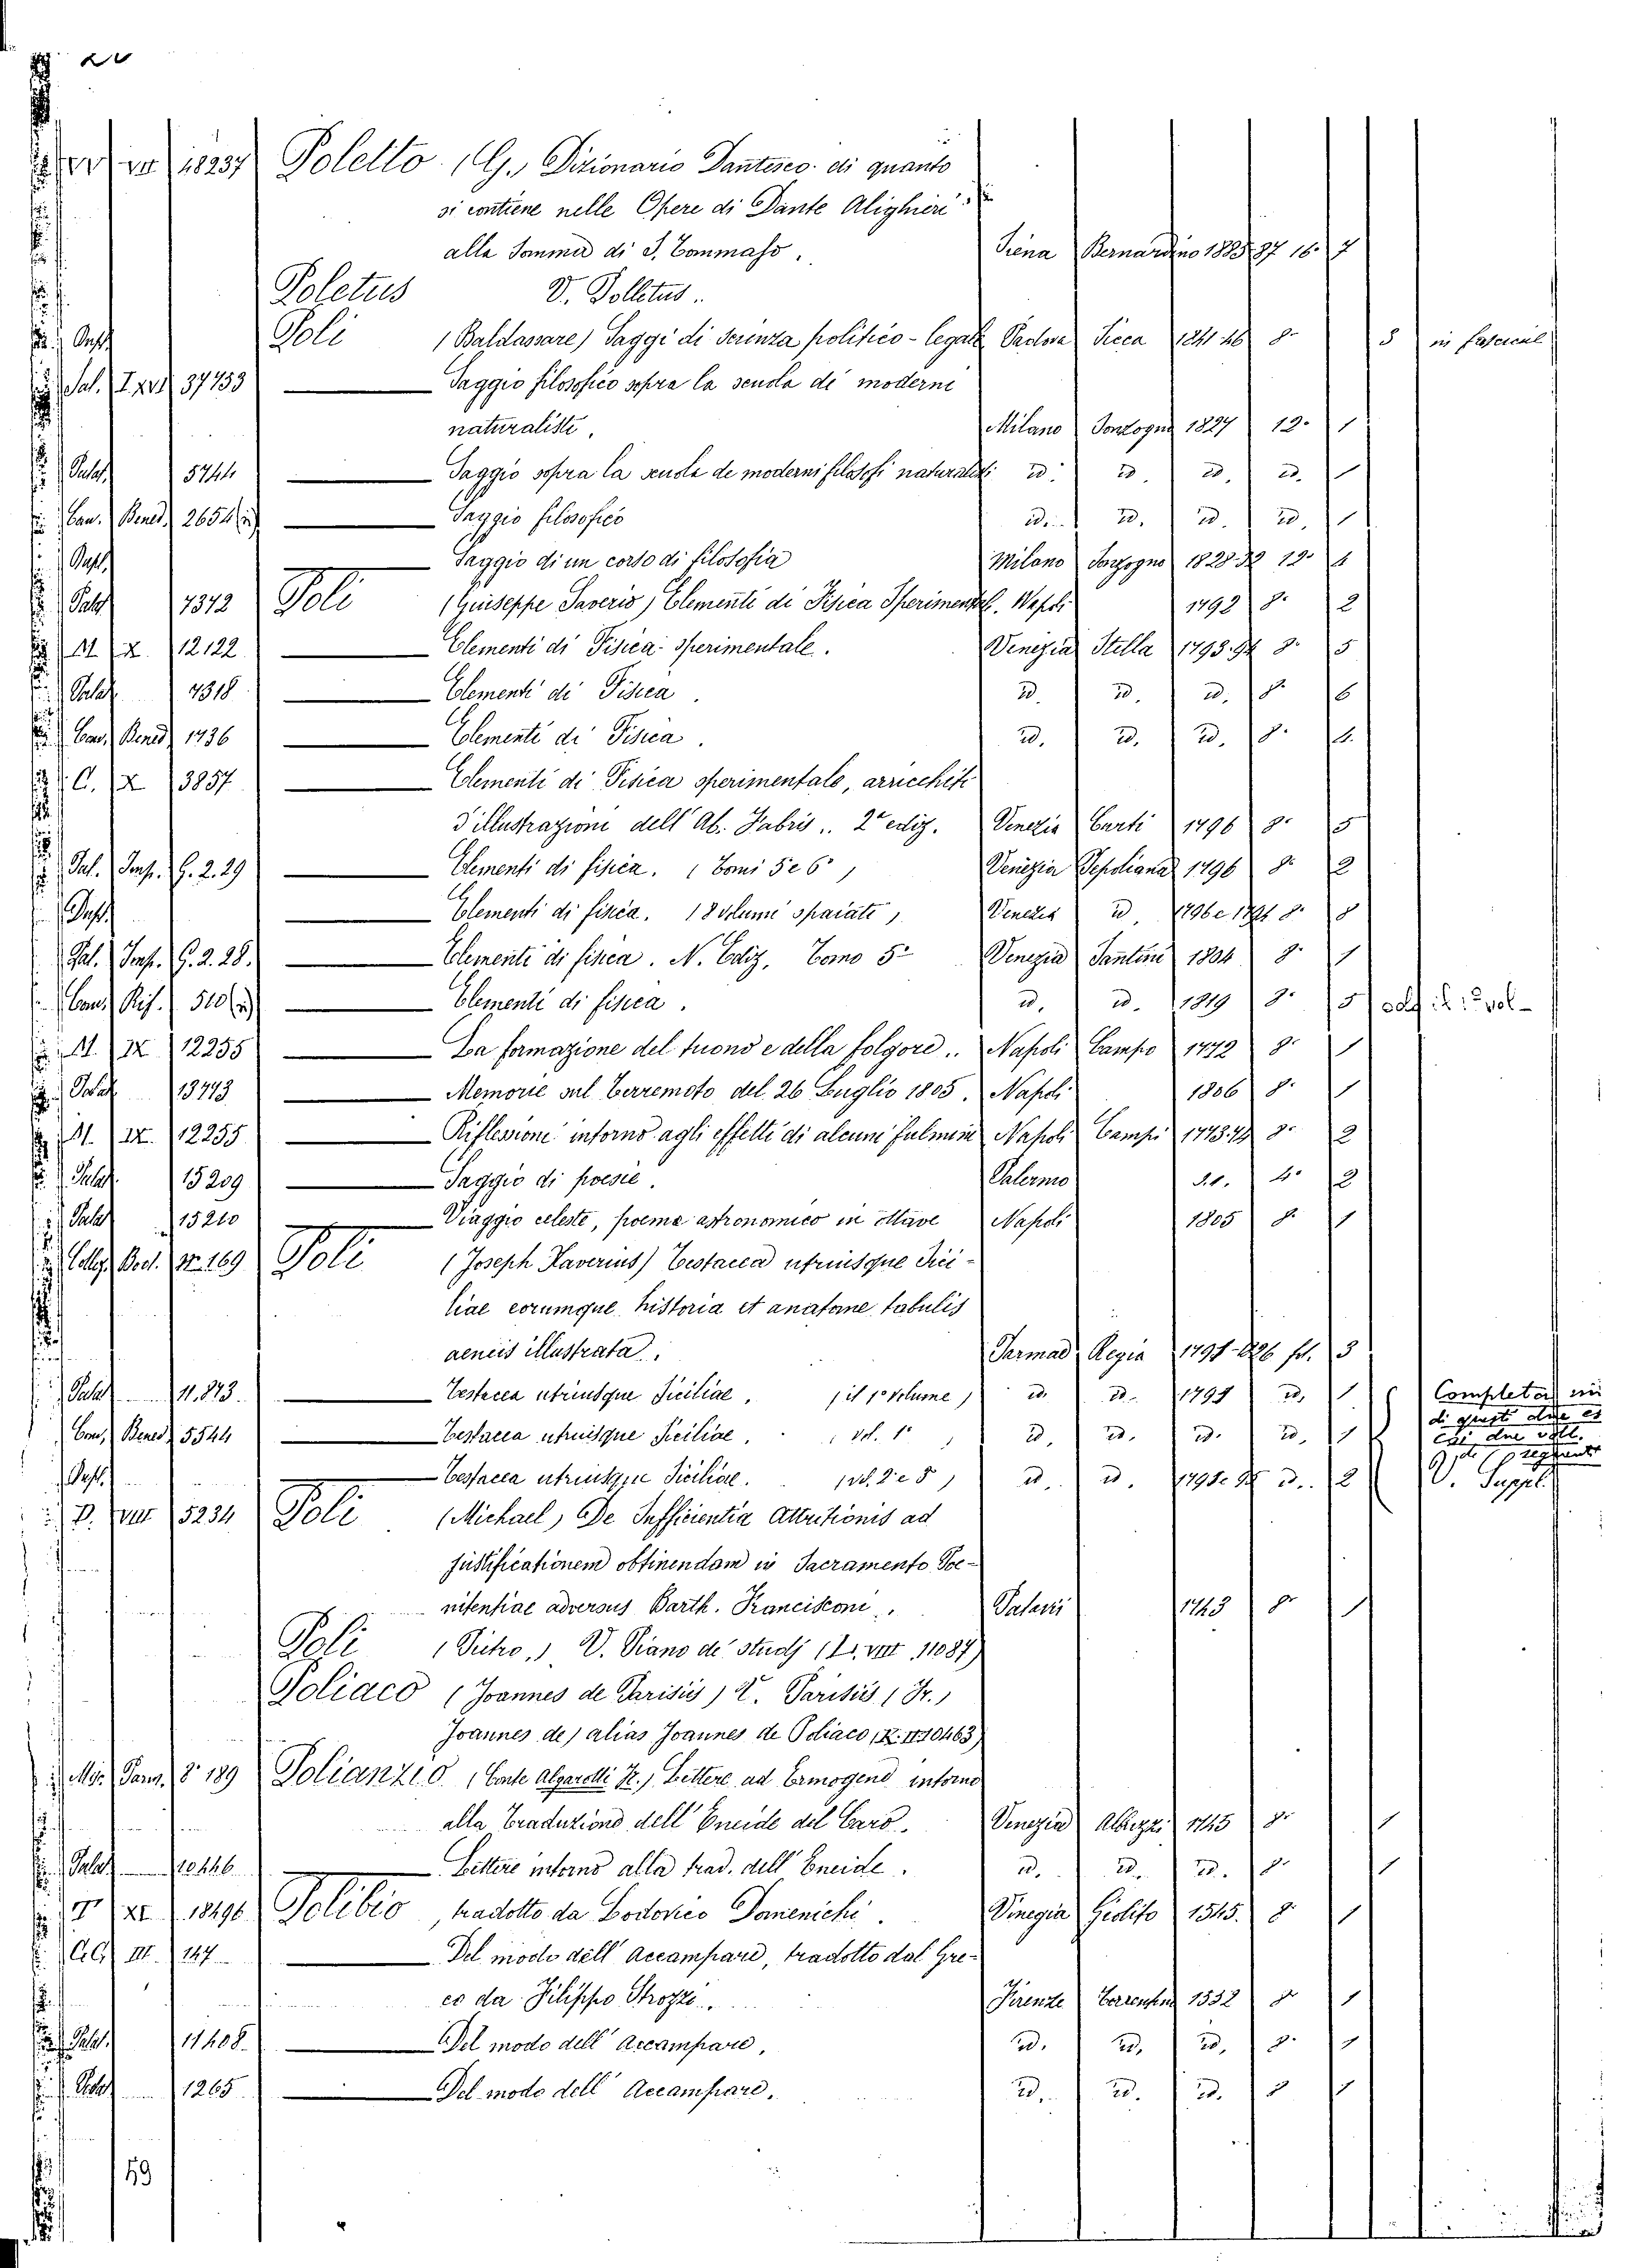 18237 Poletto (G.) Dizionario Dantesco di quanto
si contiene nelle Opere di Dante Alighieri
alla Somma di S. Tommaso. Siena Bernardino 1885.87 16. 7
Poletus V. Polletus.
Poli (Baldassare) Saggi di scienza politico-legale Padova Sicca 1841 46 8° 5 in fascicul
Pal. I. XVI 37753 Saggio filosofico sopra la scuola de' moderni
naturalisti. Milano Sonzogno 1827 12. 1
Palat. 5744 Saggio sopra la scuola de moderni filosofi naturalisti id. id. id. id. 1
Can. Bened. 2654 Saggio filosofico id. id. id. id. 1
Saggio di un corso di filosofia Milano Sonzogno 1828-32 12. 4
Palat. 7372 Poli (Giuseppe Saverio) Elementi di Fisica Sperimental. Napoli 1792 8. 2
M X. 12122 Elementi di Fisica Sperimentale. Venezia Stella 1793.94 8. 5
Palat. 7318 Elementi di Fisica. id. id. id. 8° 6
Can. Bened. 1736 Elementi di Fisica. id. id. id. 8.
C. X 13857 Elementi di Fisica sperimentale, arricchiti
d'illustrazioni dell' Ab. Fabris. 2ª ediz. Venezia Curti 1796 8° 5
Pal. Imp. G. 2. 29 Elementi di fisica. (Tomi 5 e 6°) Venezia Pepoliana 1796 8. 2
Elementi di fisica. (8 volumi spaiati) Venezia id. 1796 e 8. 8
Pal. Imp. G. 2. 28. Elementi di fisica. N. Ediz. Tomo 5° Venezia Santini 1804 8° 1
Can. Ris. 510 Elementi di fisica. id. id. 1819 8. 5 vol-
M. IX 12255 La formazione del tuono e della folgore.. Napoli Campo 1772 8° 1
Palat. 13773 Memorie sul Terremoto del 26 Luglio 1805. Napoli 1806 8. 1
M. IX. 12255 Riflessioni intorno agli effetti di alcuni fulmini Napoli Campo 1773.74 8. 2
Palat. 15209 Saggio di poesie. Palermo s.a. 4° 2
Palat. 15210 Viaggio celeste, poema astronomico in ottave Napoli 1805 8. 1
Colleg. Bot. 169 Poli (Joseph Xaverius) Testacea utriusque Sici-
liae eorumque historia et anatome tabulis
aeneis illustrata. Parmae Regia 1791-826 fo. 3
Palat. 11.873. Testacea utriusque Siciliae. (il 1° volume) id. id. 1791 id. 1 Completo
Can. Bened. 5544 Testacea utriusque Siciliae. (vol. 1° ) id. id. id. id. 1 di questi due
Testacea utriusque Siciliae. (vol. 2 e 5) id. id. id. 2 V. Suppl.
P. VIII 5234 Poli (Michael) De Sufficientia Attritionis ad
justificationem obtinendam in Sacramento Poe-
nitentiae adversus Barth. Francisconi. Patavii 1743 8° 1
Poli (Pietro,) V. Piano de' studj (L. VIII 11087)
Poliaco (Joannes de Parisiis) V. Parisiis (Fr.)
Joannes de) alias Joannes de Poliaco
Mis. Parm. 8° 189 Polianzio (Conte Algarotti Fr.) Lettere ad Ermogene intorno
alla Traduzione dell' Eneide del Caro. Venezia Albrizzi 1745 8° 1
Palat. 10446 Lettere intorno alla trad. dell' Eneide. id. id. id. 8° 1
XI. 18496 Polibio, tradotto da Lodovico Domenichi. Vinegia Giolito 1545. 8° 1
III. 147 Del modo dell' accampare, tradotto dal Gre-
co da Filippo Strozzi. Firenze Torrentino 1552 8° 1
Palat. 11408. Del modo dell' Accampare, id. id. id. 8. 1
Palat. 1265 Del modo dell' Accampare, id. id. id. 8 1
59